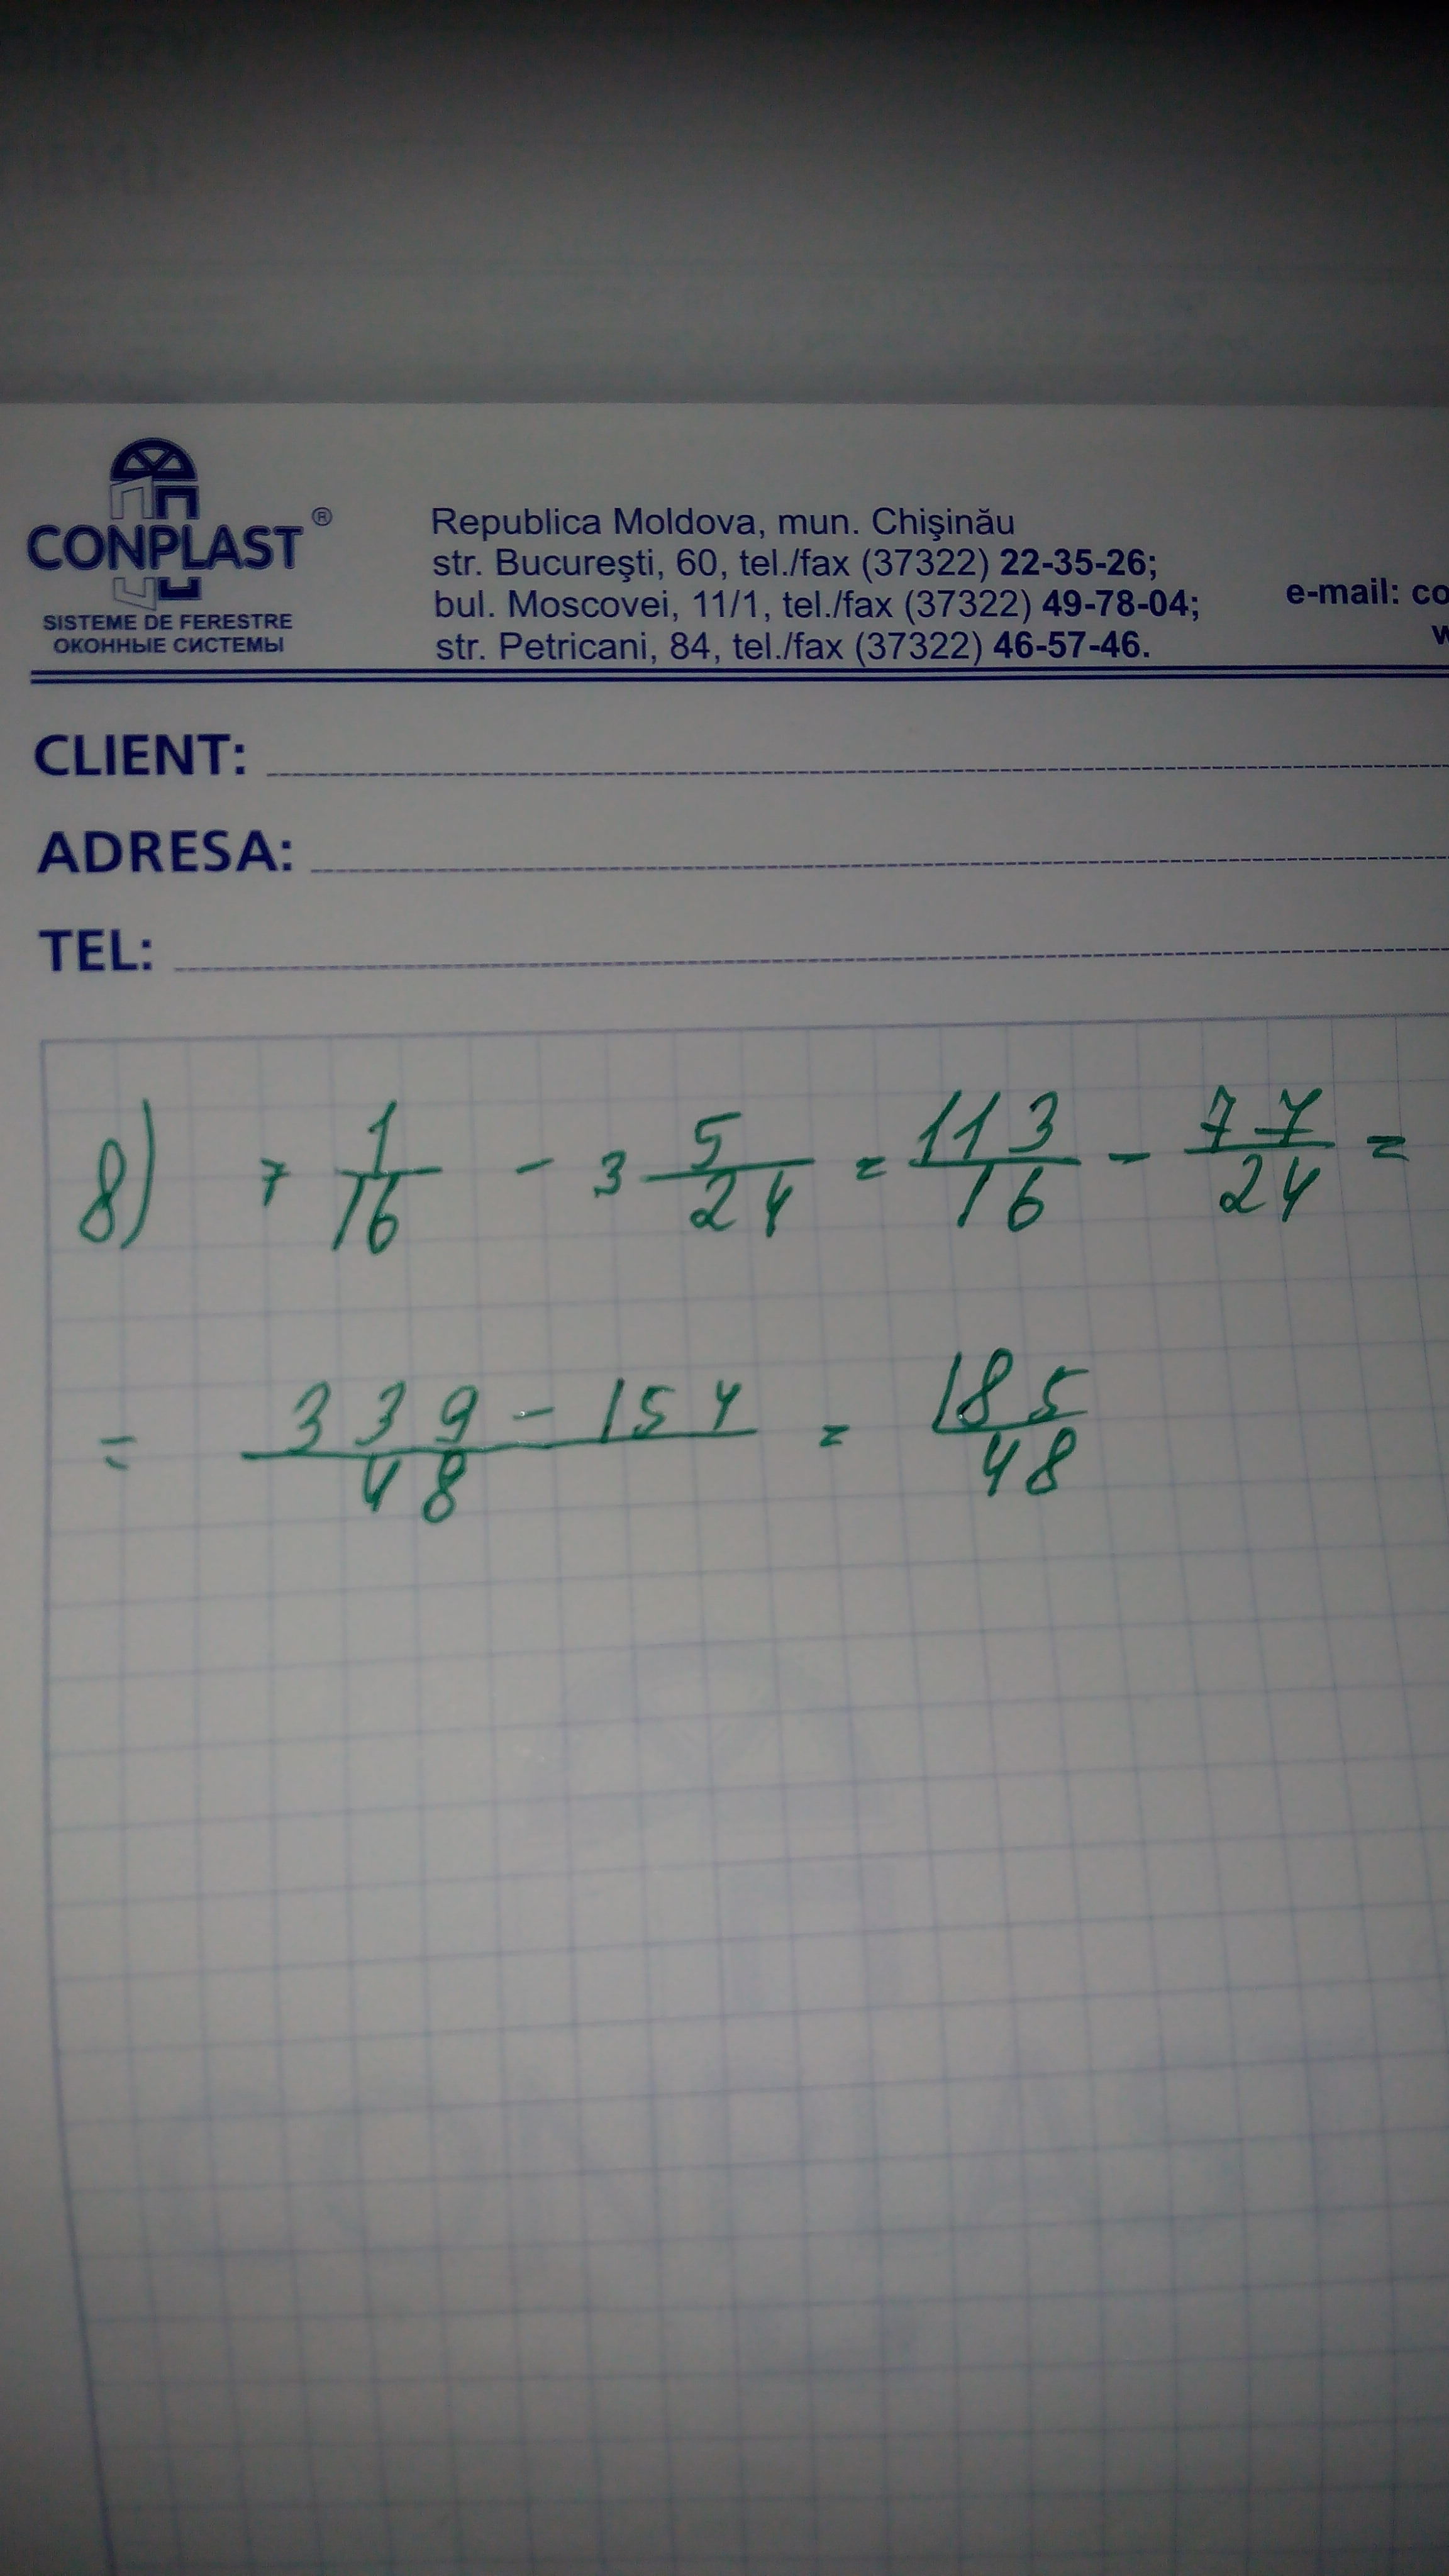 CONPLAST®
SISTEME DE FERESTRE
ОКОННЫЕ СИСТЕМЫ
Republica Moldova, mun. Chişinău
str. Bucureşti, 60, tel./fax (37322) 22-35-26;
bul. Moscovei, 11/1, tel./fax (37322) 49-78-04;
str. Petricani, 84, tel./fax (37322) 46-57-46.
e-mail: co
w
CLIENT:
ADRESA:
TEL:
8) 7 1/16 - 3 5/24 = 113/16 - 77/24 =
= 339 - 154/48 = 185/48